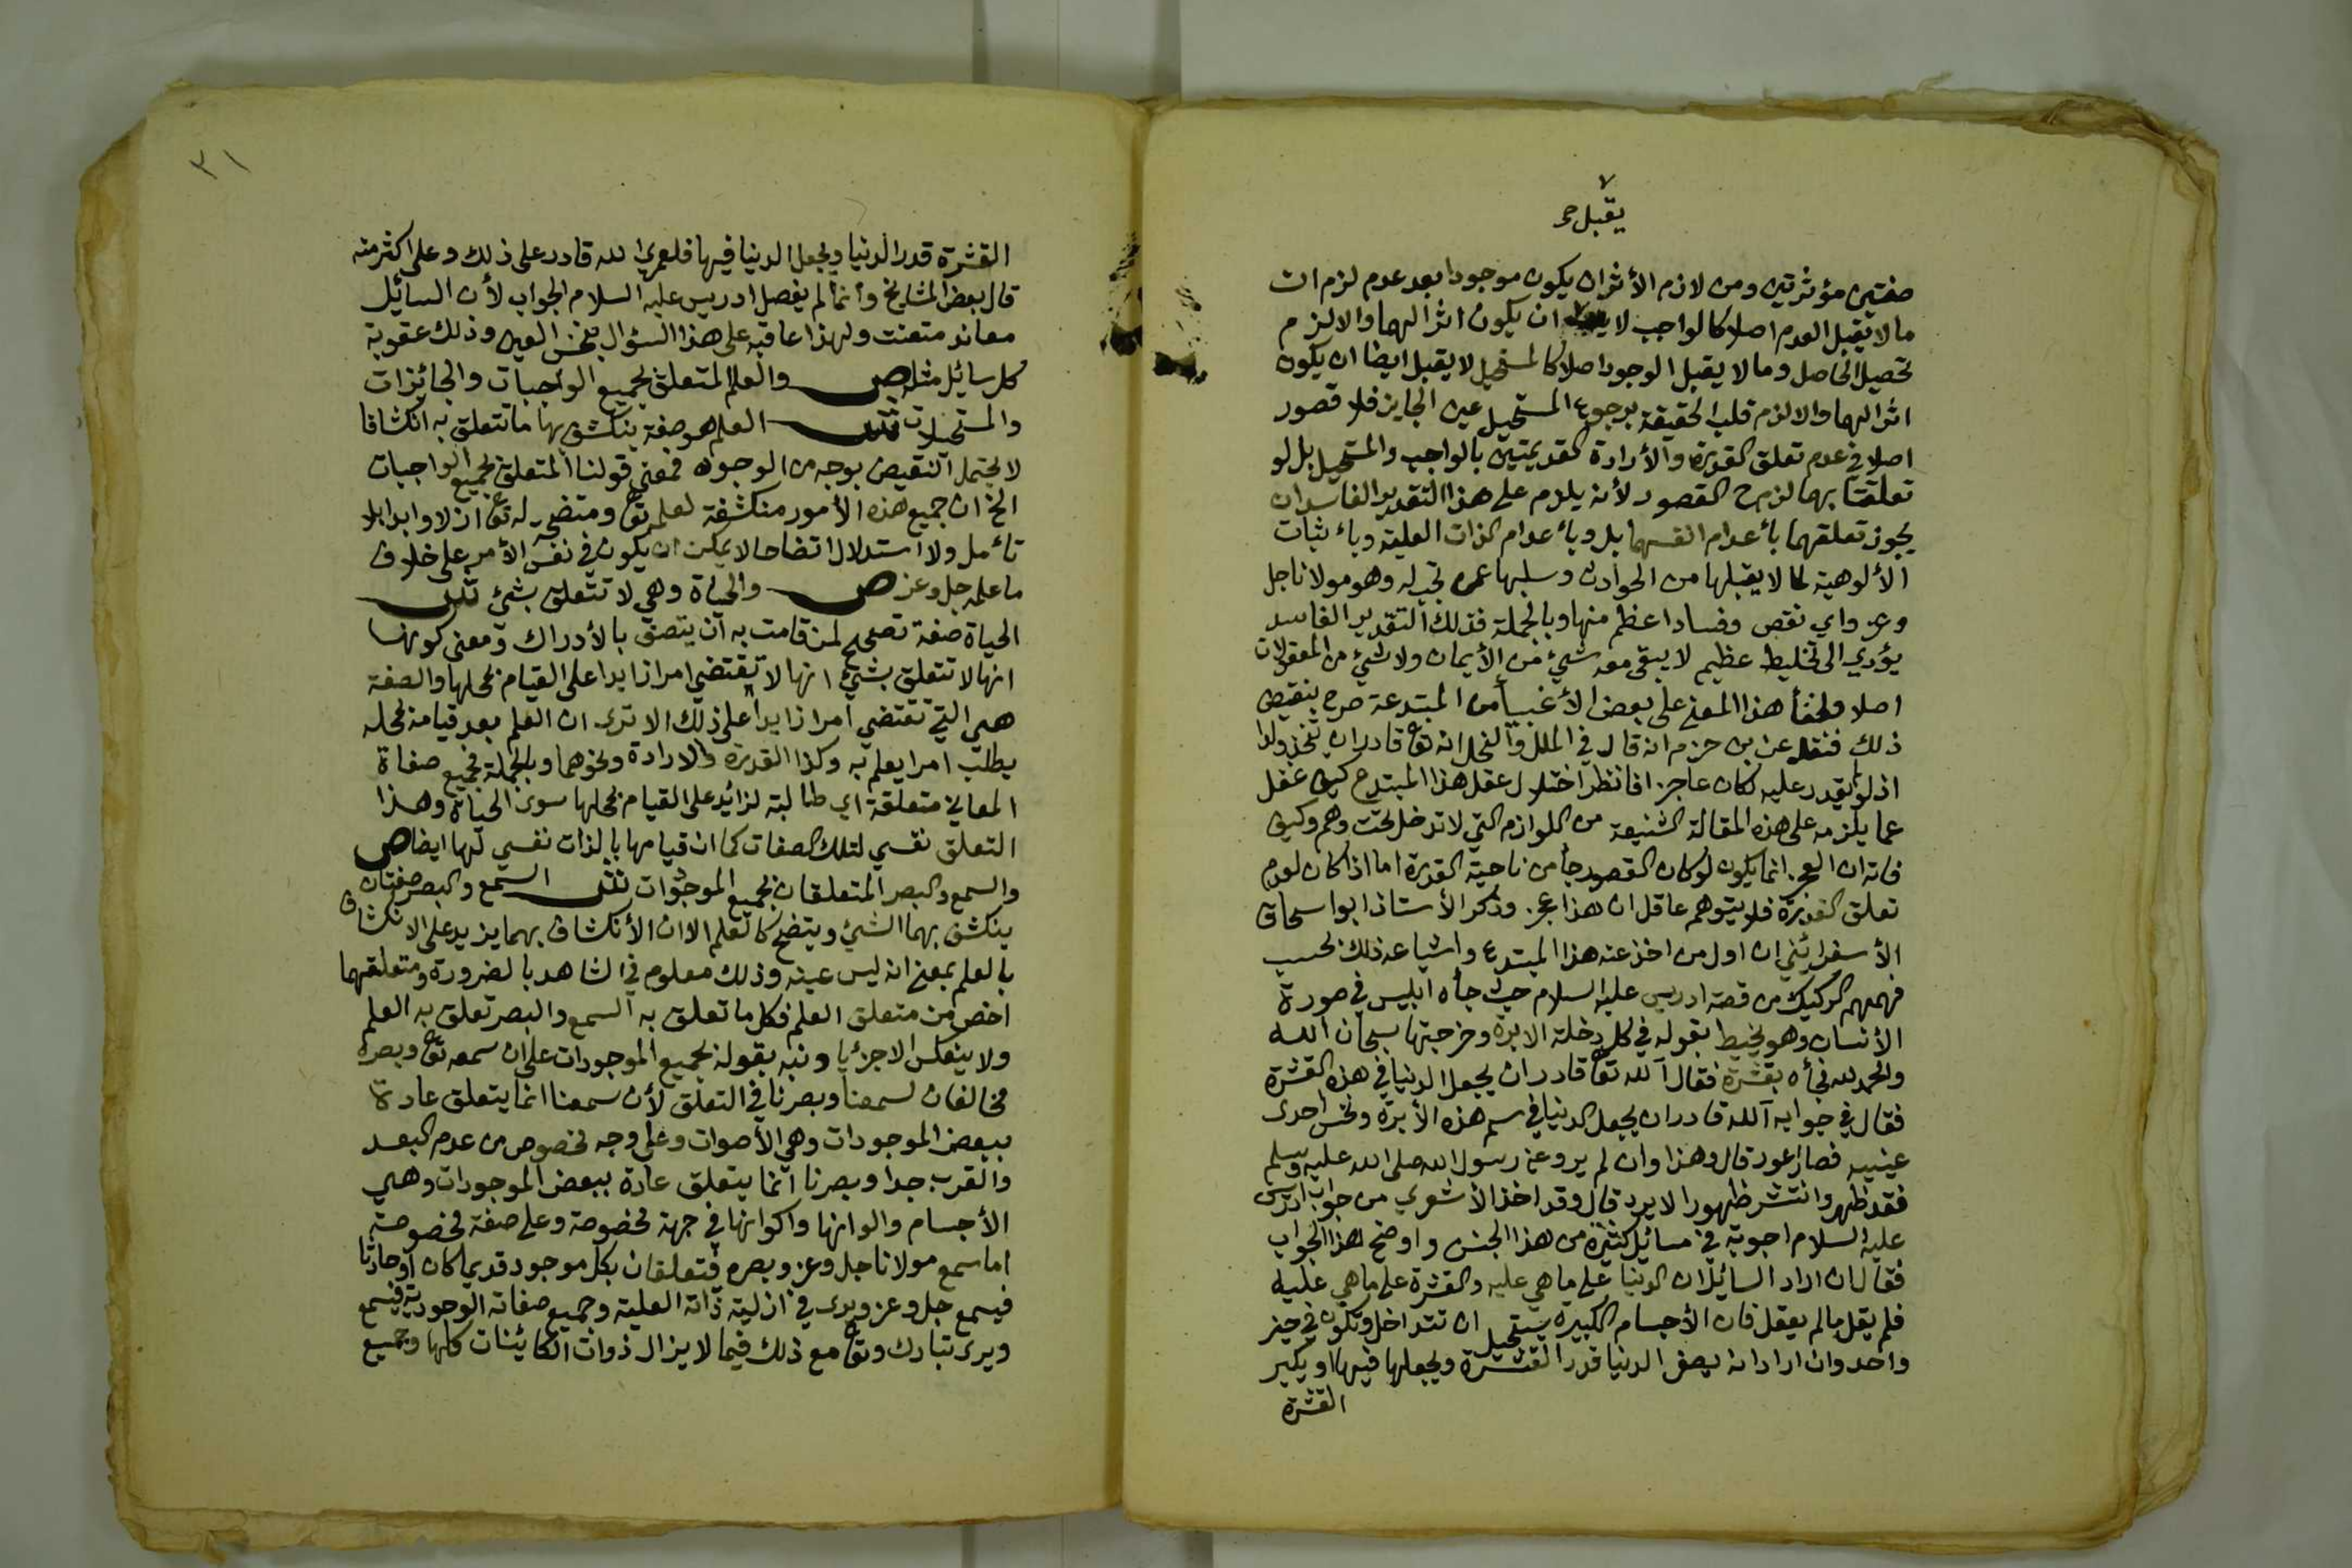 ٧
يقبل صح
صفتين مؤثرتين ومن لازم الأثر ان يكون موجودا بعد عدم لزم ان
ما لا يقبل العدم اصلا كالواجب لا ان يكون اثرا لهما والا لزم
تحصيل الحاصل وما لا يقبل الوجود اصلا كالمستحيل لا يقبل ايضا ان يكون
اثرا لهما والا لزم قلب الحقيقة برجوع المستحيل عين الجايز فلا قصور
اصلا في عدم تعلق القدرة والأرادة القديمتين بالواجب والمستحيل بل لو
تعلقتا بهما لزم ح القصور لأنه يلزم على هذا التقدير الفاسد ان
يجوز تعلقهما بأعدام انفسهما بل وبأعدام الذات العلية وبأثبات
الألوهية لما لا يقبلها من الحوادث وسلبها عمن تجب له وهو مولانا جل
وعز واي نقص وفساد اعظم منها وبالجملة فذلك التقدير الفاسد
يؤدي الى تخليط عظيم لا يبقى معه شيئ من الأيمان ولا شيئ من المعقولات
اصلا ولخفأ هذا المعنى على بعض الأغبيأ من المبتدعة صرح بنقيض
ذلك فنقل عن بن حزم انه قال في الملل والنحل انه تعا قادر ان يتخذ ولدا
اذ لو لم يقدر عليه لكان عاجزا فانظر اختلال عقل هذا المبتدع كيف غفل
عما يلزمه على هذه المقالة الشنيعة من اللوازم التي لا تدخل تحت وهم وكيف
فاته ان العجز انما يكون لو كان القصور جأ من ناحية القدرة اما اذا كان لعدم
تعلق القدرة فلا يتوهم عاقل ان هذا عجز وذكر الأستاذ ابو اسحاق
الأسفرائني ان اول من اخذ عنه هذا المبتدع واشياعه ذلك بحسب
فهمهم الركيك من قصة ادريس عليه السلام حيث جأه ابليس في صورة
الأنسان وهو يخيط بقوله في كل دخلة الابرة وخرجتها سبحان الله
والحمد لله فجأه بقشرة فقال آلله تعا قادر ان يجعل الدنيا في هذه القشرة
فقال في جوابه آلله قادر ان يجعل الدنيا في سم هذه الأبرة ونخس احدى
عينيه فصار اعور قال وهذا وان لم يرو عن رسول الله صلى الله عليه وسلم
فقد ظهر وانتشر ظهورا لا يرد قال وقد اخذ الأشعري من جواب ادريس
عليه السلام اجوبة في مسائل كثيرة من هذا الجنس واوضح هذا الجواب
فقال ان اراد السائل ان الدنيا على ما هي عليه والقشرة على ما هي عليه
فلم يقل ما لم يعقل فان الأجسام الكبيرة يستحيل ان تتداخل وتكون في حيز
واحد وان اراد انه يصغر الدنيا قدر القشرة ويجعلها فيها او يكبر
القشرة
٣١
القشرة قدر الدنيا ويجعل الدنيا فيها فلعمري الله قادر على ذلك وعلى اكثر منه
قال بعض المشايخ وانما لم يفصل ادريس عليه السلام الجواب لأن السائل
معاند متعنت ولهذا عاقبه على هذا السؤال بنخس العين وذلك عقوبة
كل سائل مثله ص والعلم المتعلق بجميع الواجبات والجائزات
والمستحيلات ش العلم هو صفة ينكشف بها ما تتعلق به انكشافا
لا يحتمل النقيض بوجه من الوجوه فمعنى قولنا المتعلق بجميع الواجبات
الخ ان جميع هذه الأمور منكشفة لعلمه تعا ومتضحة له تعا ازلا وابدا بلا
تأمل ولا استدلال اتضاحا لا يمكن ان يكون في نفس الأمر على خلاف
ما علمه جل وعز ص والحياة وهي لا تتعلق بشيئ ش
الحياة صفة تصحح لمن قامت به ان يتصف بالأدراك ومعنى كونها
انها لا تتعلق بشيئ انها لا تقتضي امرا زايدا على القيام بمحلها والصفة
هي التي تقتضي امرا زايدا على ذلك الا ترى ان العلم بعد قيامه بمحله
يطلب امرا يعلم به وكذا القدرة والارادة ونحوهما وبالجملة فجميع صفاة
المعاني متعلقة اي طالبة لزائد على القيام بمحلها سوى الحياة وهذا
التعلق نفسي لتلك الصفات كما ان قيامها بالذات نفسي لها ايضا ص
والسمع والبصر المتعلقان بجميع الموجودات ش السمع والبصر صفتان
ينكشف بهما الشيئ ويتضح كالعلم الا ان الأنكشاف بهما يزيد على الانكشاف
بالعلم بمعنى انه ليس عينه وذلك معلوم في الشاهد بالضرورة ومتعلقهما
اخص من متعلق العلم فكل ما تعلق به السمع والبصر تعلق به العلم
ولا ينعكس الا جزئيا ونبه بقوله بجميع الموجودات على ان سمعه تعا وبصره
مخالفان لسمعنا وبصرنا في التعلق لأن سمعنا انما يتعلق عادة
ببعض الموجودات وهي الأصوات وعلى وجه مخصوص من عدم البعد
والقرب جدا وبصرنا انما يتعلق عادة ببعض الموجودات وهي
الأجسام والوانها واكوانها في جهة مخصوصة وعلى صفة مخصوصة
اما سمع مولانا جل وعز وبصره فتعلقان بكل موجود قديما كان او حادثا
فيسمع جل وعز ويرى في ازليته ذاته العلية وجميع صفاته الوجودية فيسمع
ويرى تبارك وتعا مع ذلك فيما لا يزال ذوات الكائينات كلها وجميع